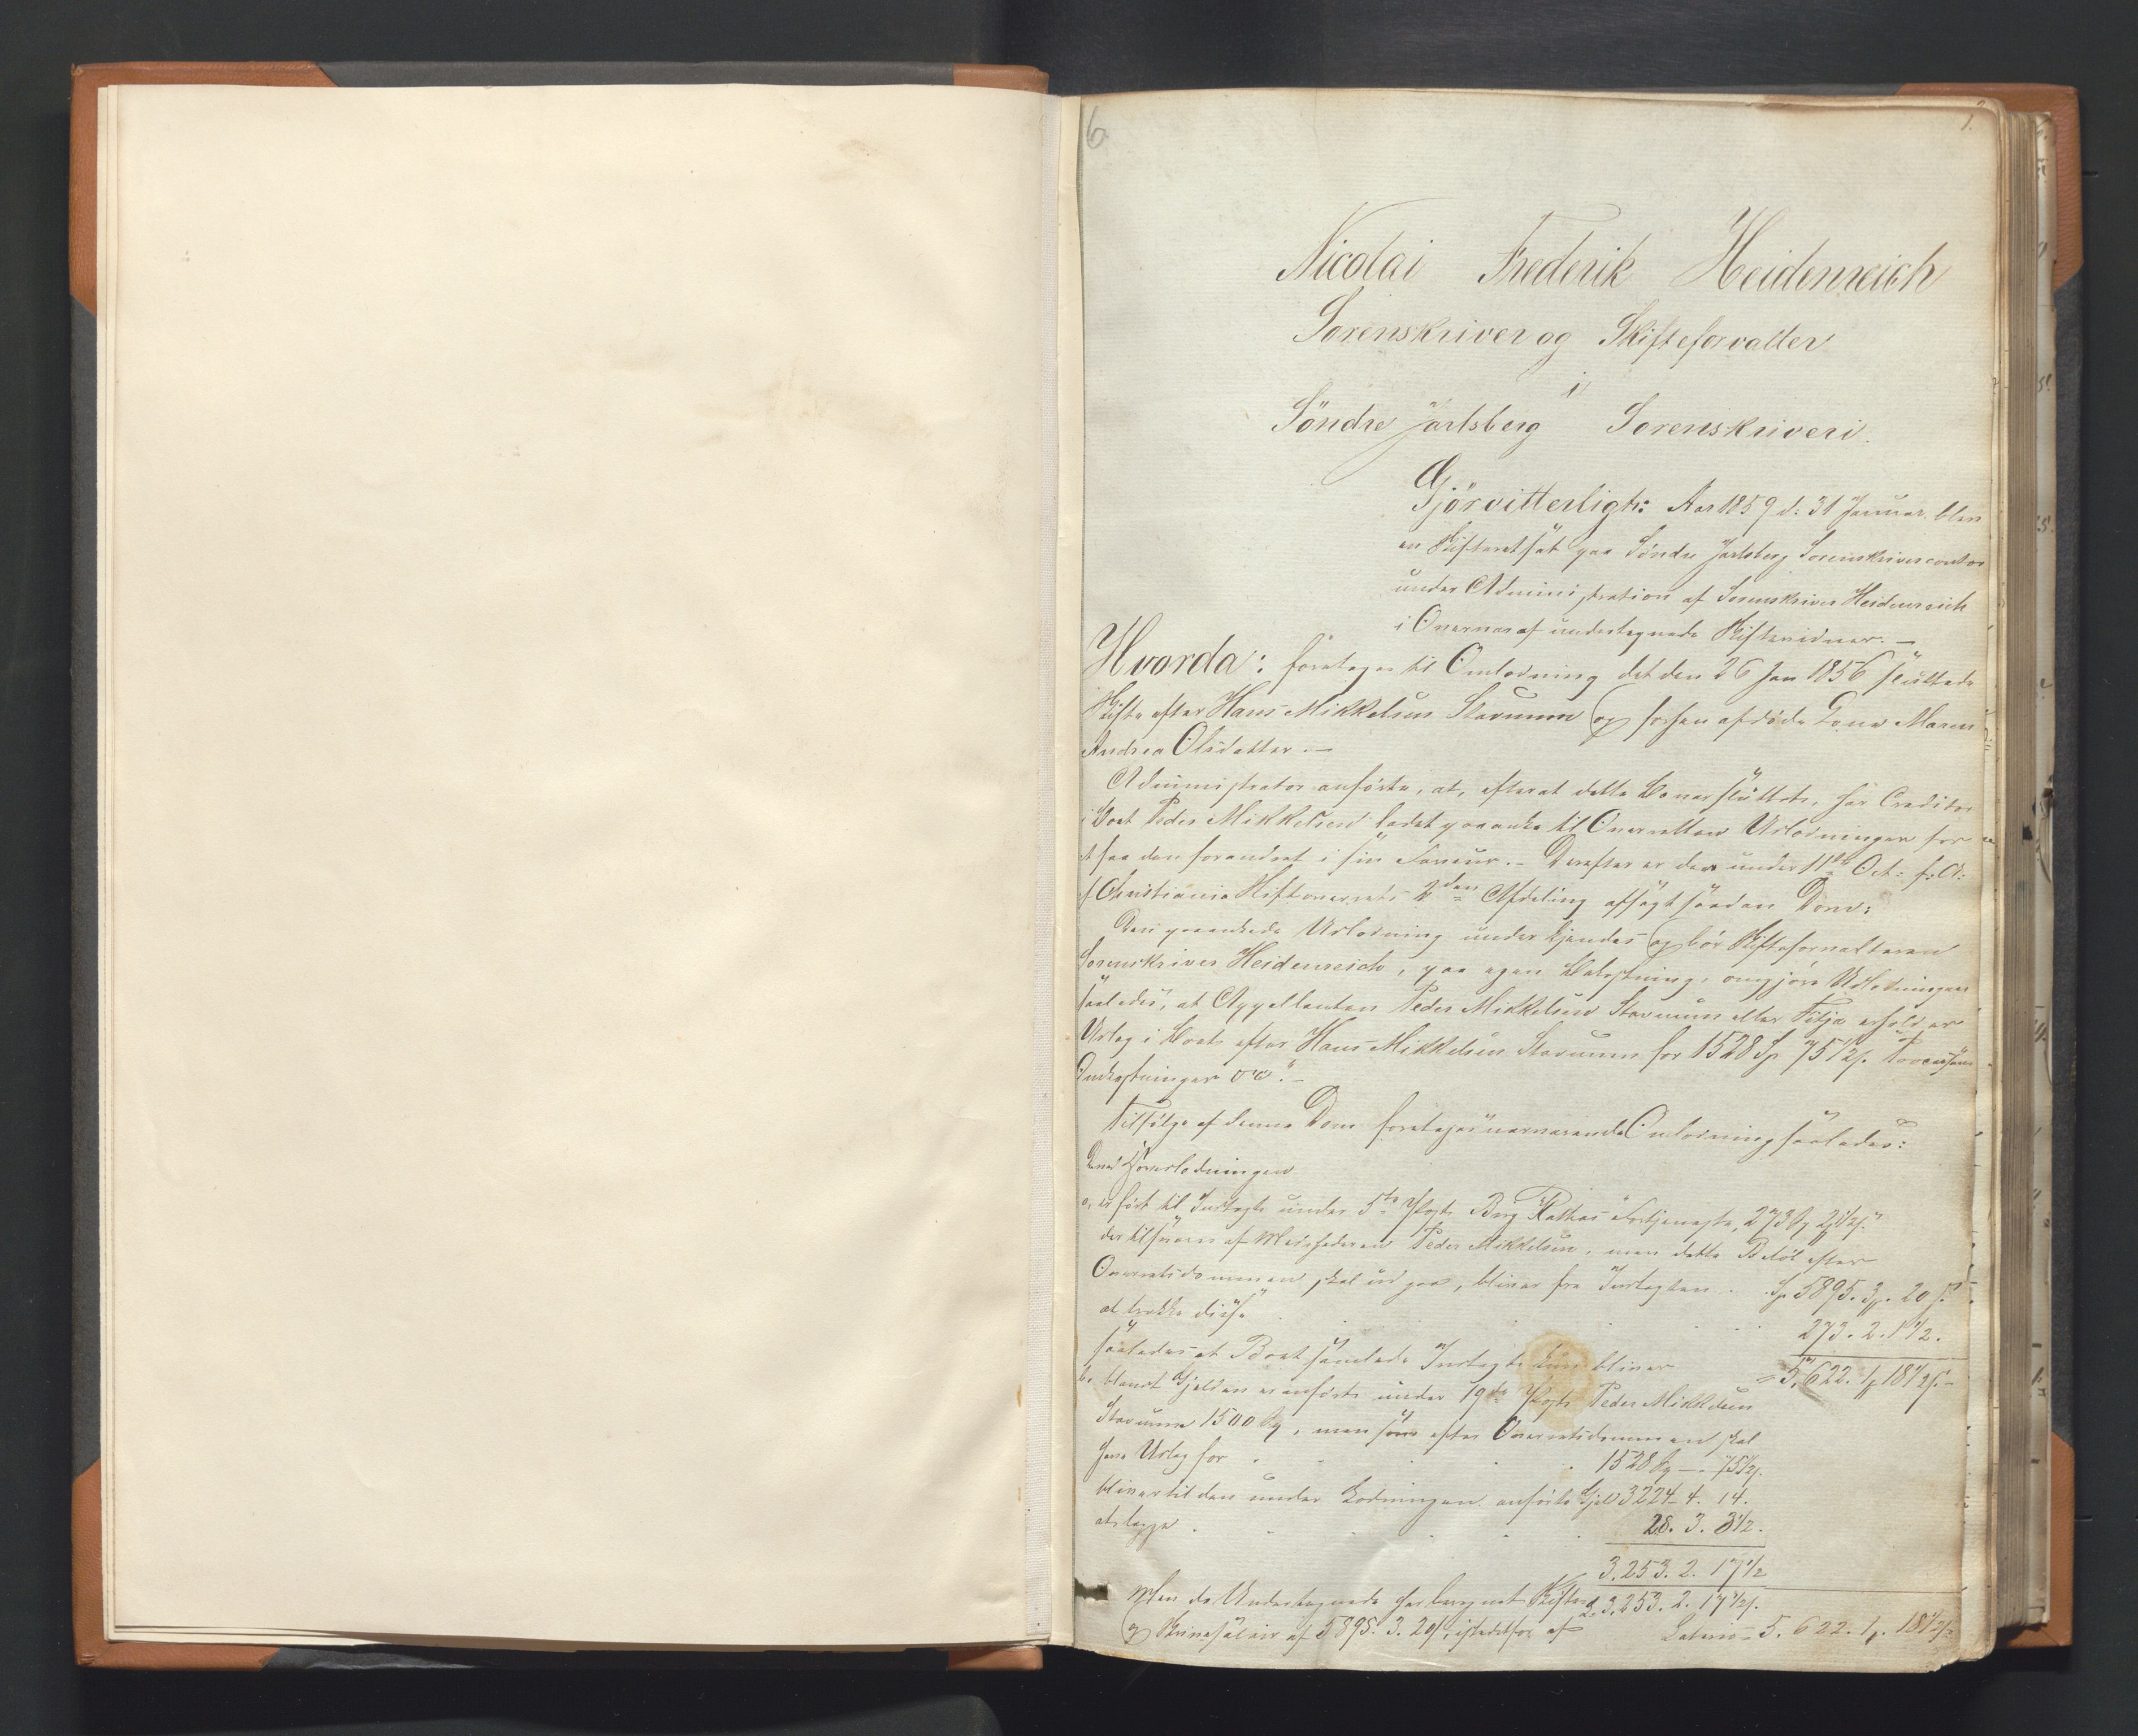 6
1.
Nicolai Frederik Heidenreich
Sorenskriver og Skifteforvalter
i
Söndre Jarlsberg Sorenskriveri.
Gjör vitterligt: Aar 1859 d: 31 Januar blev
en Skifteret sat paa Söndre Jarlsberg Sorenskrivercontor
under Administration af Sorenskriver Heidenreich
i Overvær af undertegnede Skiftevidner. —
Hvorda: foretoges til Omlodning det den 26 Jan 1856 sluttede
Skifte efter Hans Mikkelsen Stavnum og forhen afdöde Kone Maren
Andrea Olsdatter. —
Administrator anförte, at, efterat dette Bo var sluttet, har Creditor
i Boet Peder Mikkelsen ladet paaanke til Overretten Udlodningen for
at faa den forandret i sin Faveur. — Derefter er der under 11te Oct: f: A:
af Christiania Stiftoverrets 2den Afdeling afsagt saadan Dom:
Den paaankede Udlodning underkjendes og bör Skifteforvalteren
Sorenskriver Heidenreich, paa egen Bekostning, omgjöre Udlodningen
saaledes, at Appellanten Peder Mikkelsen Stavnum eller erholder
Udlæg i Boet efter Hans Mikkelsen Stavnum for 1528 Sp 75½ s.
Omkostninger
Tilfölge af denne Dom foretages nærværende Omlodning saaledes:
Ved Hovedlodningen
a, er fört til Indtægt under 5te Post Fortjeneste, 273 Sp 2 1½ s.
der tilsvares af Peder Mikkelsen, men dette Belöb efter
Overretsdommen skal udgaa, bliver fra Indtægten . Sp 5895. 3. 20 s.
at trække disse . . . . 273. 2. 1½.
saaledes at Boets samlede Indtægt kun bliver = 5,622. 1. 18½ s. —
b. blandt Gjelden er anfört under 19de Post Peder Mikkelsen
Stavnum 1500 Sp, men som efter Overretsdommen skal
have Udlæg for . . . . 1528 Sp — 75½ s.
bliver til den under Lodningen anförte Gjeld 3224. 4. 14.
at lægge . . . . 28. 3. 3½.
3,253. 2. 17½
Men da Undertegnede har beregnet 3,253. 2. 17½ s.
og af 5895. 3. 20 s, istedetfor af Lateris = 5,622. 1. 18½ s.